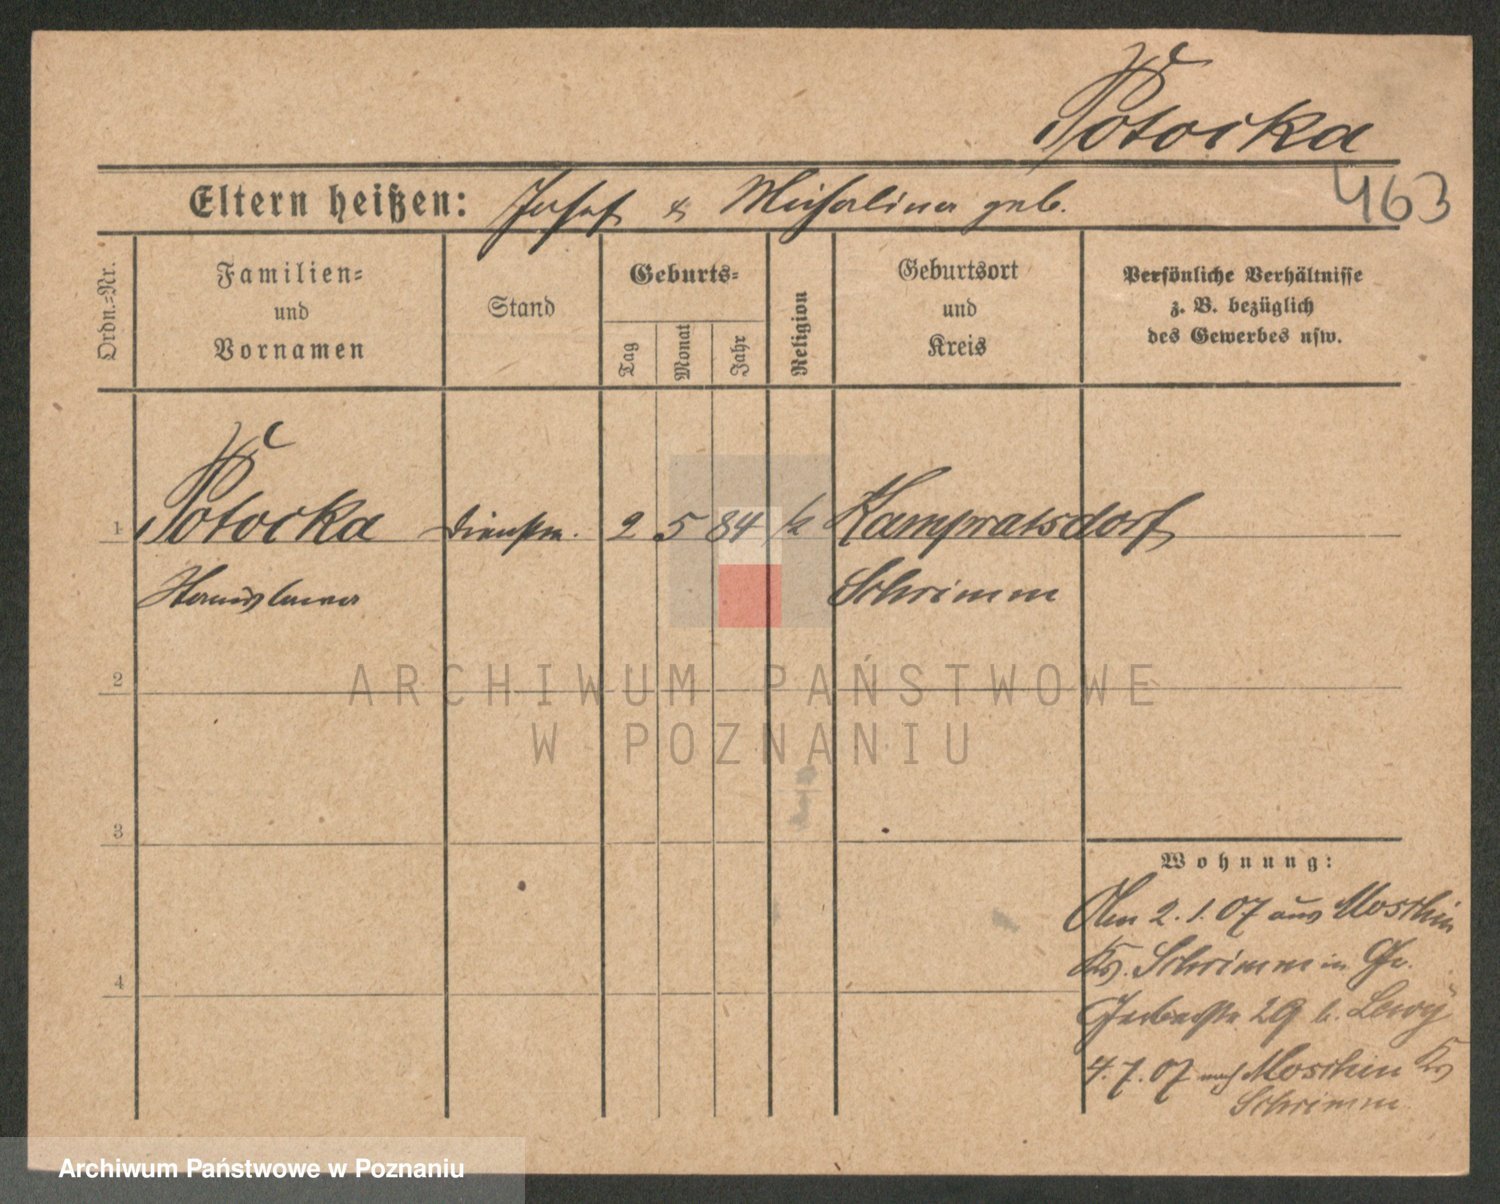 Potocka
463
Eltern heißen: Josef & Michalina geb.
Ordn.-Nr.
Familien-
und
Vornamen
Stand
Geburts-
Tag
Monat
Jahr
Religion
Geburtsort
und
Kreis
Persönliche Verhältnisse
z. B. bezüglich
des Gewerbes usw.
1 Potocka Dienstm. 2 5 84 k Kampratsdorf
Schrimm
2
3
4
Wohnung:
2.1.07 aus Moschin
Krs. Schrimm in
29 b. Lewy
4.7.07 nach Moschin Krs
Schrimm
ARCHIWUM PAŃSTWOWE
W POZNANIU
Archiwum Państwowe w Poznaniu